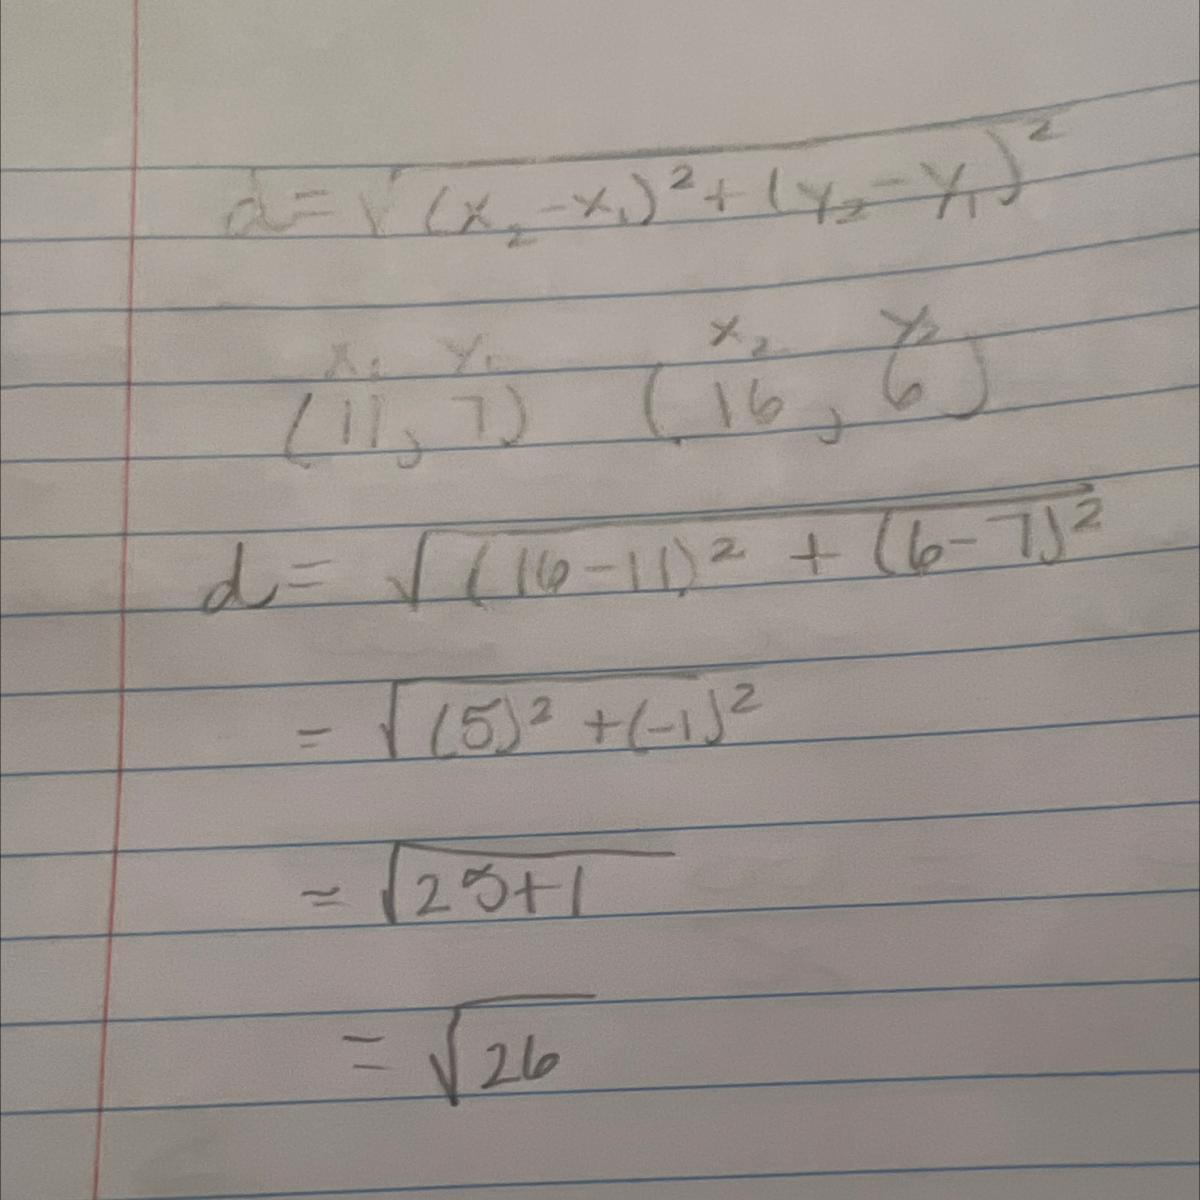 d = √(x₂ - x₁)² + (y₂ - y₁)²
x₁ y₁ x₂ y₂
(11, 7) (16, 6)
d = √(16 - 11)² + (6 - 7)²
= √(5)² + (-1)²
= √25 + 1
= √26